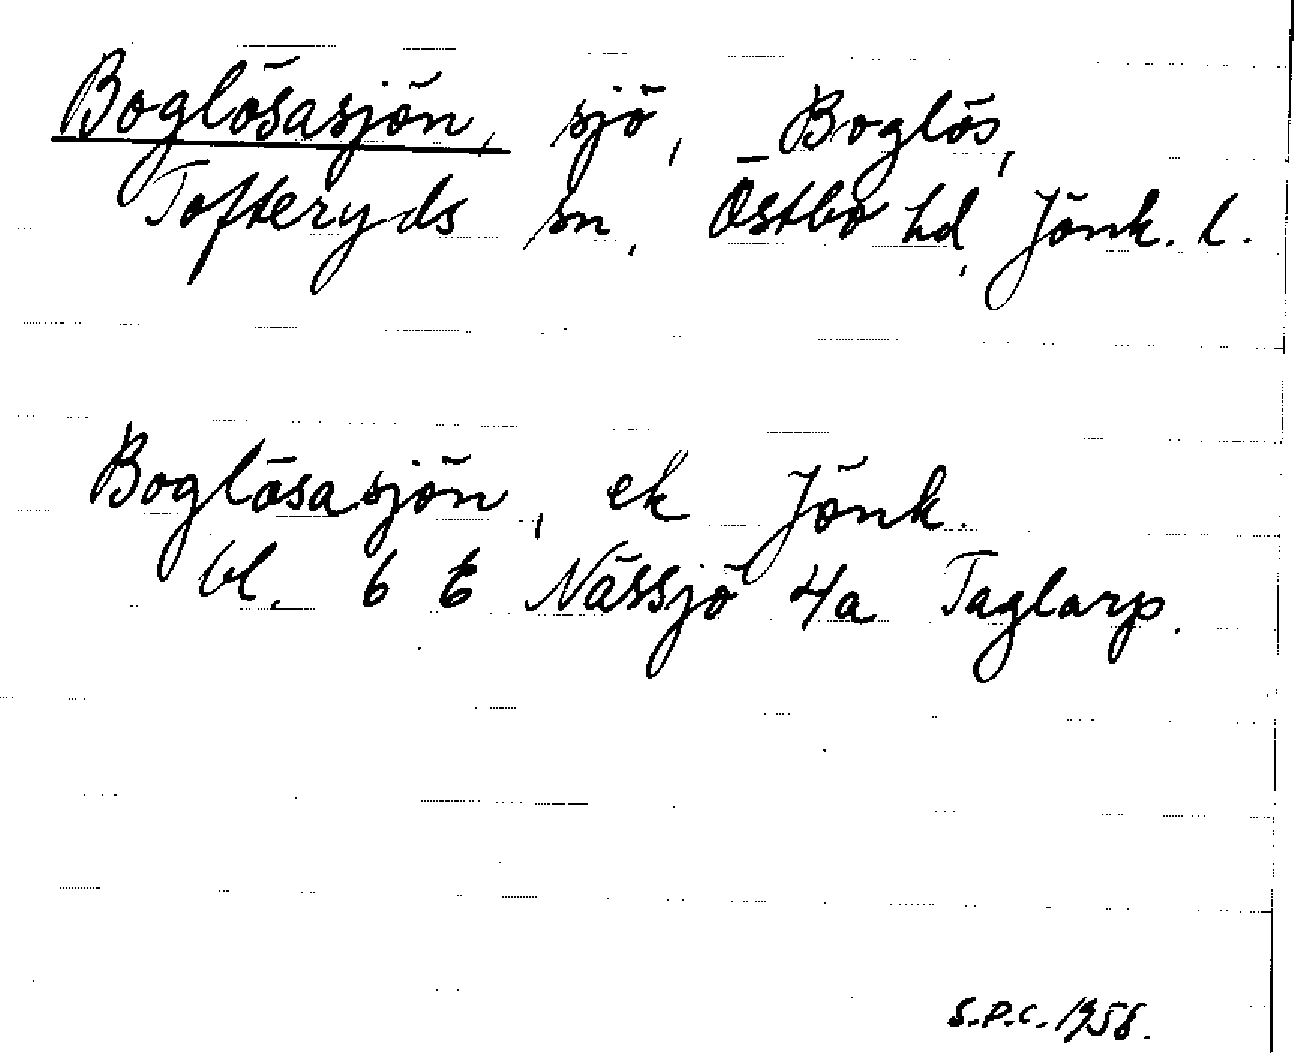 Boglösasjön, sjö, Boglös,
Tofteryds sn, Östbo hd, Jönk. l.
Boglösasjön, ek Jönk.
bl. 6 E Nässjö 4a Taglarp.
S.P.C. 1958.